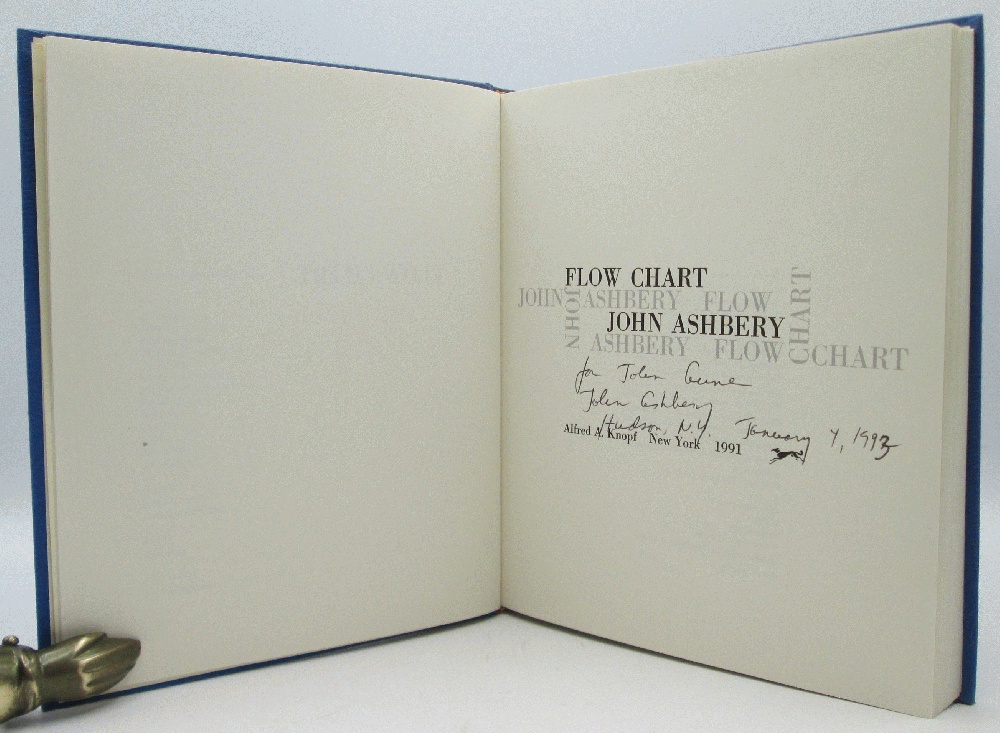 FLOW CHART
JOHN ASHBERY FLOW CHART
JOHN ASHBERY
JOHN ASHBERY FLOW CHART
for John
John Ashbery
Hudson, N.Y. January 4, 1993
Alfred A. Knopf New York 1991